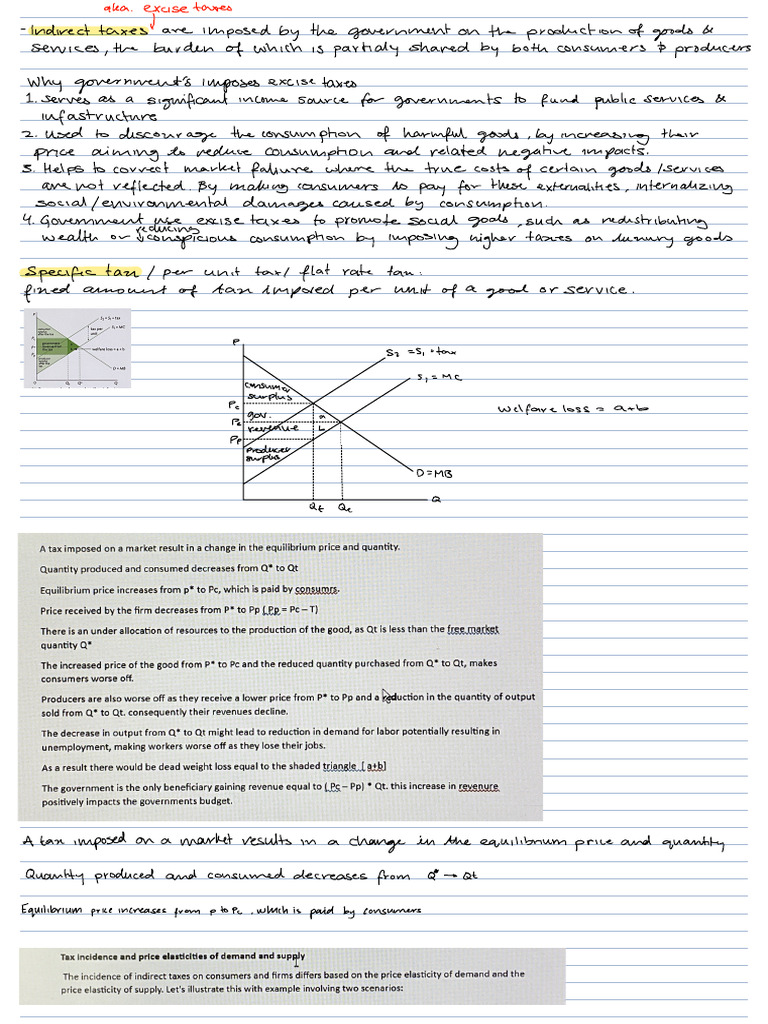 aka. excise taxes
- Indirect taxes are imposed by the government on the production of goods &
services, the burden of which is partialy shared by both consumers & producers
Why government's imposes excise taxes
1. serves as a significant income source for governments to fund public services &
infastructure
2. used to discourage the consumption of harmful goods, by increasing their
price aiming to reduce consumption and related negative impacts.
3. Helps to correct market failure where the true costs of certain goods/services
are not reflected. By making consumers to pay for these externalities, internalizing
social/environmental damages caused by consumption.
4. Government use excise taxes to promote social goals, such as redistributing
wealth or reducing conspicious consumption by imposing higher taxes on luxury goods
Specific tax / per unit tax / flat rate tax:
fixed amount of tax imposed per unit of a good or service.
P
S₂ = S₁ + tax
S₁ = MC
tax per
unit
welfare loss = a + b
D = MB
P
S₂ = S₁ + tax
S₁ = MC
consumer
surplus
Pc
gov.
a
welfare loss = a+b
Pe
revenue
b
Pp
producer
surplus
D = MB
Qt Qe
Q
A tax imposed on a market result in a change in the equilibrium price and quantity.
Quantity produced and consumed decreases from Q* to Qt
Equilibrium price increases from p* to Pc, which is paid by consumrs.
Price received by the firm decreases from P* to Pp ( Pp = Pc – T)
There is an under allocation of resources to the production of the good, as Qt is less than the free market
quantity Q*
The increased price of the good from P* to Pc and the reduced quantity purchased from Q* to Qt, makes
consumers worse off.
Producers are also worse off as they receive a lower price from P* to Pp and a reduction in the quantity of output
sold from Q* to Qt. consequently their revenues decline.
The decrease in output from Q* to Qt might lead to reduction in demand for labor potentially resulting in
unemployment, making workers worse off as they lose their jobs.
As a result there would be dead weight loss equal to the shaded triangle [ a+b]
The government is the only beneficiary gaining revenue equal to ( Pc – Pp) * Qt. this increase in revenure
positively impacts the governments budget.
A tax imposed on a market results in a change in the equilibrium price and quantity
Quantity produced and consumed decreases from Q* → Qt
Equilibrium price increases from p to Pc, which is paid by consumers
Tax incidence and price elasticities of demand and supply
The incidence of indirect taxes on consumers and firms differs based on the price elasticity of demand and the
price elasticity of supply. Let's illustrate this with example involving two scenarios: